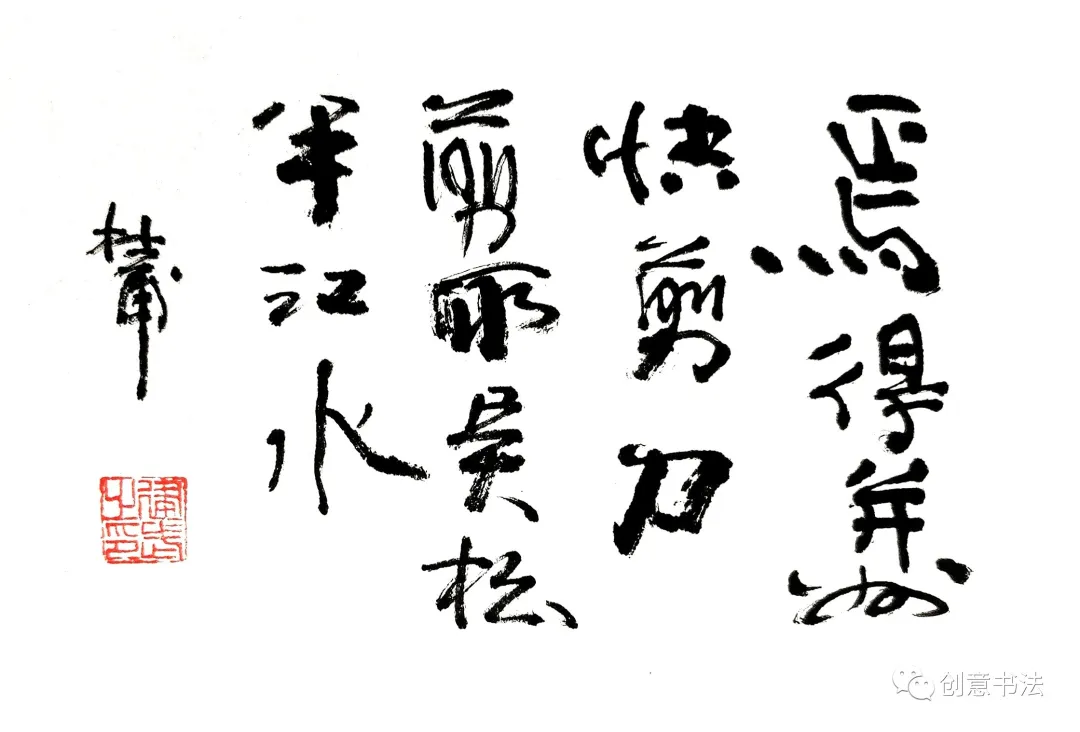 焉得并州
快剪刀
剪取吴松
半江水
创意书法